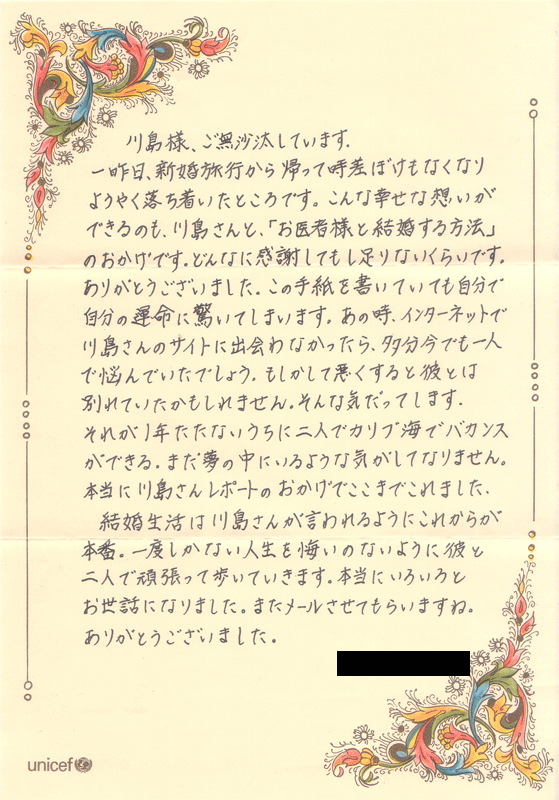 川島様、ご無沙汰しています.
一昨日、新婚旅行から帰って時差ぼけもなくなり
ようやく落ち着いたところです。こんな幸せな想いが
できるのも、川島さんと、「お医者様と結婚する方法」
のおかげです。どんなに感謝してもし足りないくらいです。
ありがとうございました。この手紙を書いていても自分で
自分の運命に驚いてしまいます。あの時、インターネットで
川島さんのサイトに出会わなかったら、多分今でも一人
で悩んでいたでしょう。もしかして悪くすると彼とは
別れていたかもしれません。そんな気だってします.
それが1年たたないうちに二人でカリブ海でバカンス
ができる。まだ夢の中にいるような気がしてなりません。
本当に川島さんレポートのおかげでここまでこれました.
結婚生活は川島さんが言われるようにこれからが
本番。一度しかない人生を悔いのないように彼と
二人で頑張って歩いていきます。本当にいろいろと
お世話になりました。またメールさせてもらいますね。
ありがとうございました。
unicef